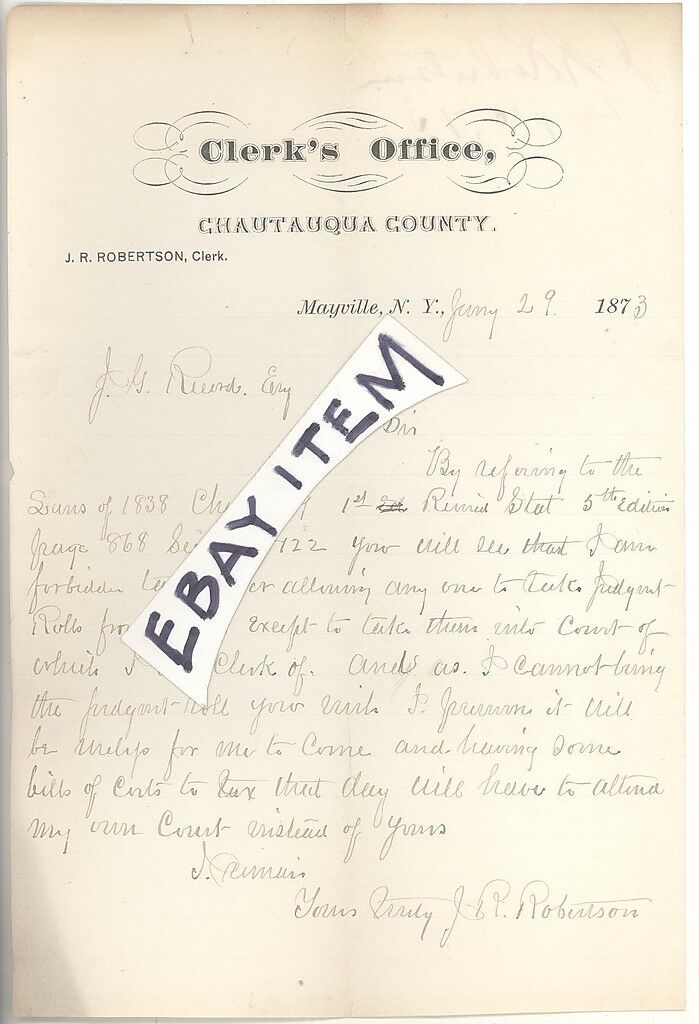 Clerk's Office,
CHAUTAUQUA COUNTY.
J. R. ROBERTSON, Clerk.
Mayville, N. Y., Jany 29 1873
J. G. Record. Esq
Sir
By refering to the
Laws of 1838 1st Revised Stat 5th Edition
page 868 122 you will see that I am
forbidden allowing any one to take Judgmt
Rolls Except to take them into Court of
which I Clerk of. and as I cannot bring
the Judgmt roll you wish I presume it will
be useless for me to Come and having some
bills of Costs to tax that day will have to attend
my own Court instead of yours
I remain
Yours truly J. R. Robertson
EBAY ITEM